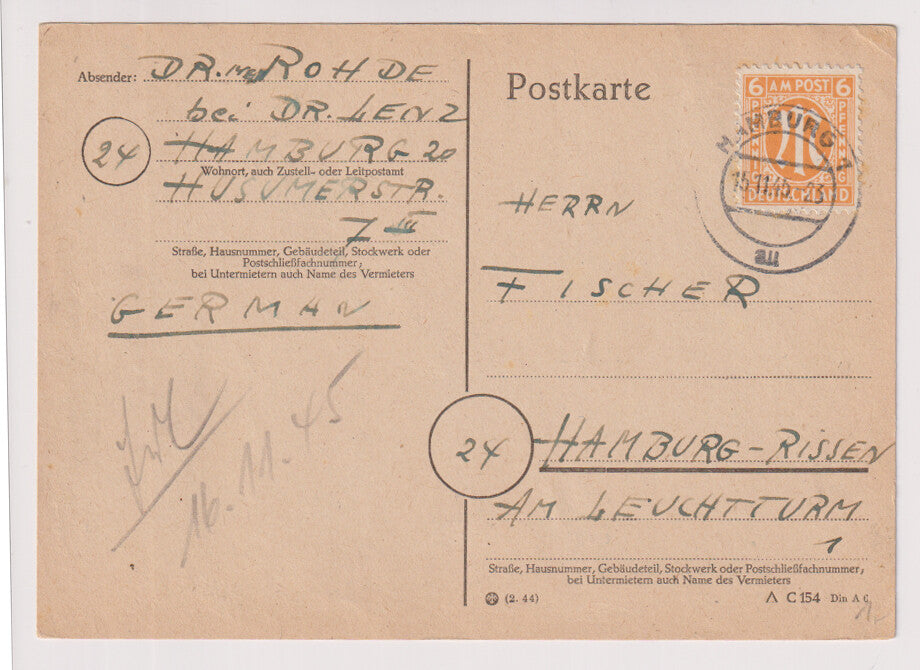 Absender: DR. med ROHDE
bei DR. LENZ
24 HAMBURG 20
Wohnort, auch Zustell- oder Leitpostamt
HUSUMERSTR.
7 III
Straße, Hausnummer, Gebäudeteil, Stockwerk oder
Postschließfachnummer;
bei Untermietern auch Name des Vermieters
GERMAN
16.11.45
Postkarte
6 AM POST 6
PFENNIG
DEUTSCHLAND
HAMBURG 1
15.11.45.-23
HERRN
FISCHER
24 HAMBURG-RISSEN
AM LEUCHTTURM
1
Straße, Hausnummer, Gebäudeteil, Stockwerk oder Postschließfachnummer;
bei Untermietern auch Name des Vermieters
(2. 44)
C 154 Din A 6